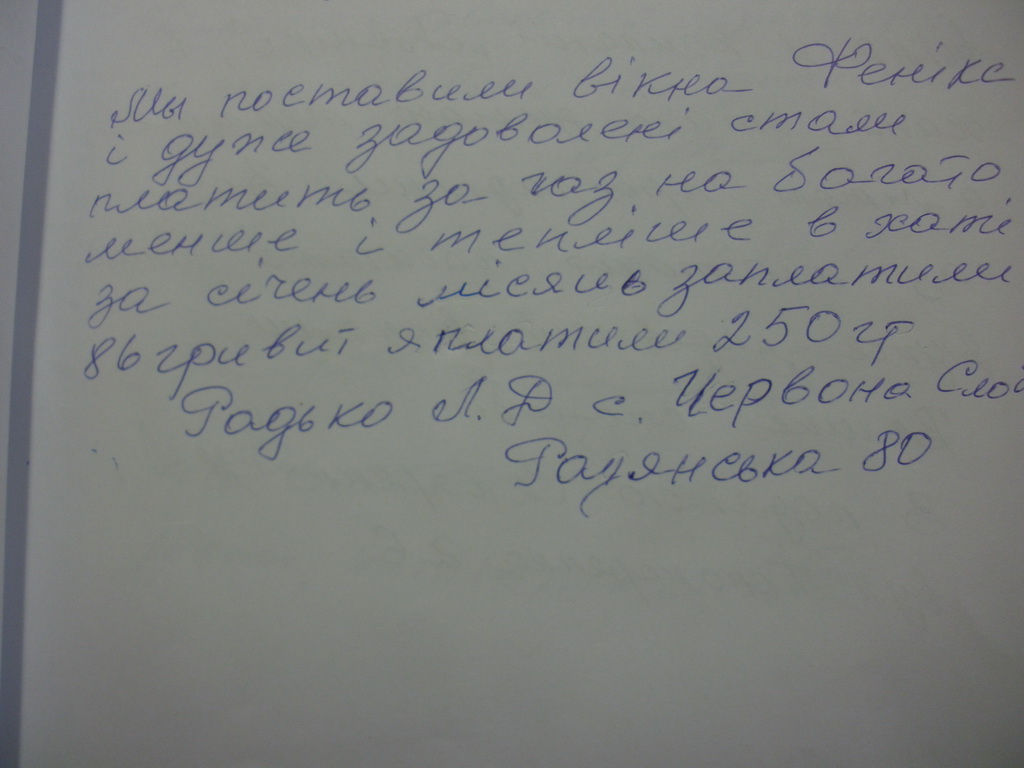 Мы поставили вікна Фенікс
і дуже задоволені стали
платить за газ на багато
менше і тепліше в хаті
за січень місяць заплатили
86 гривні я платили 250 гр
Радько Л. Д с. Червона Сло
Радянська 80